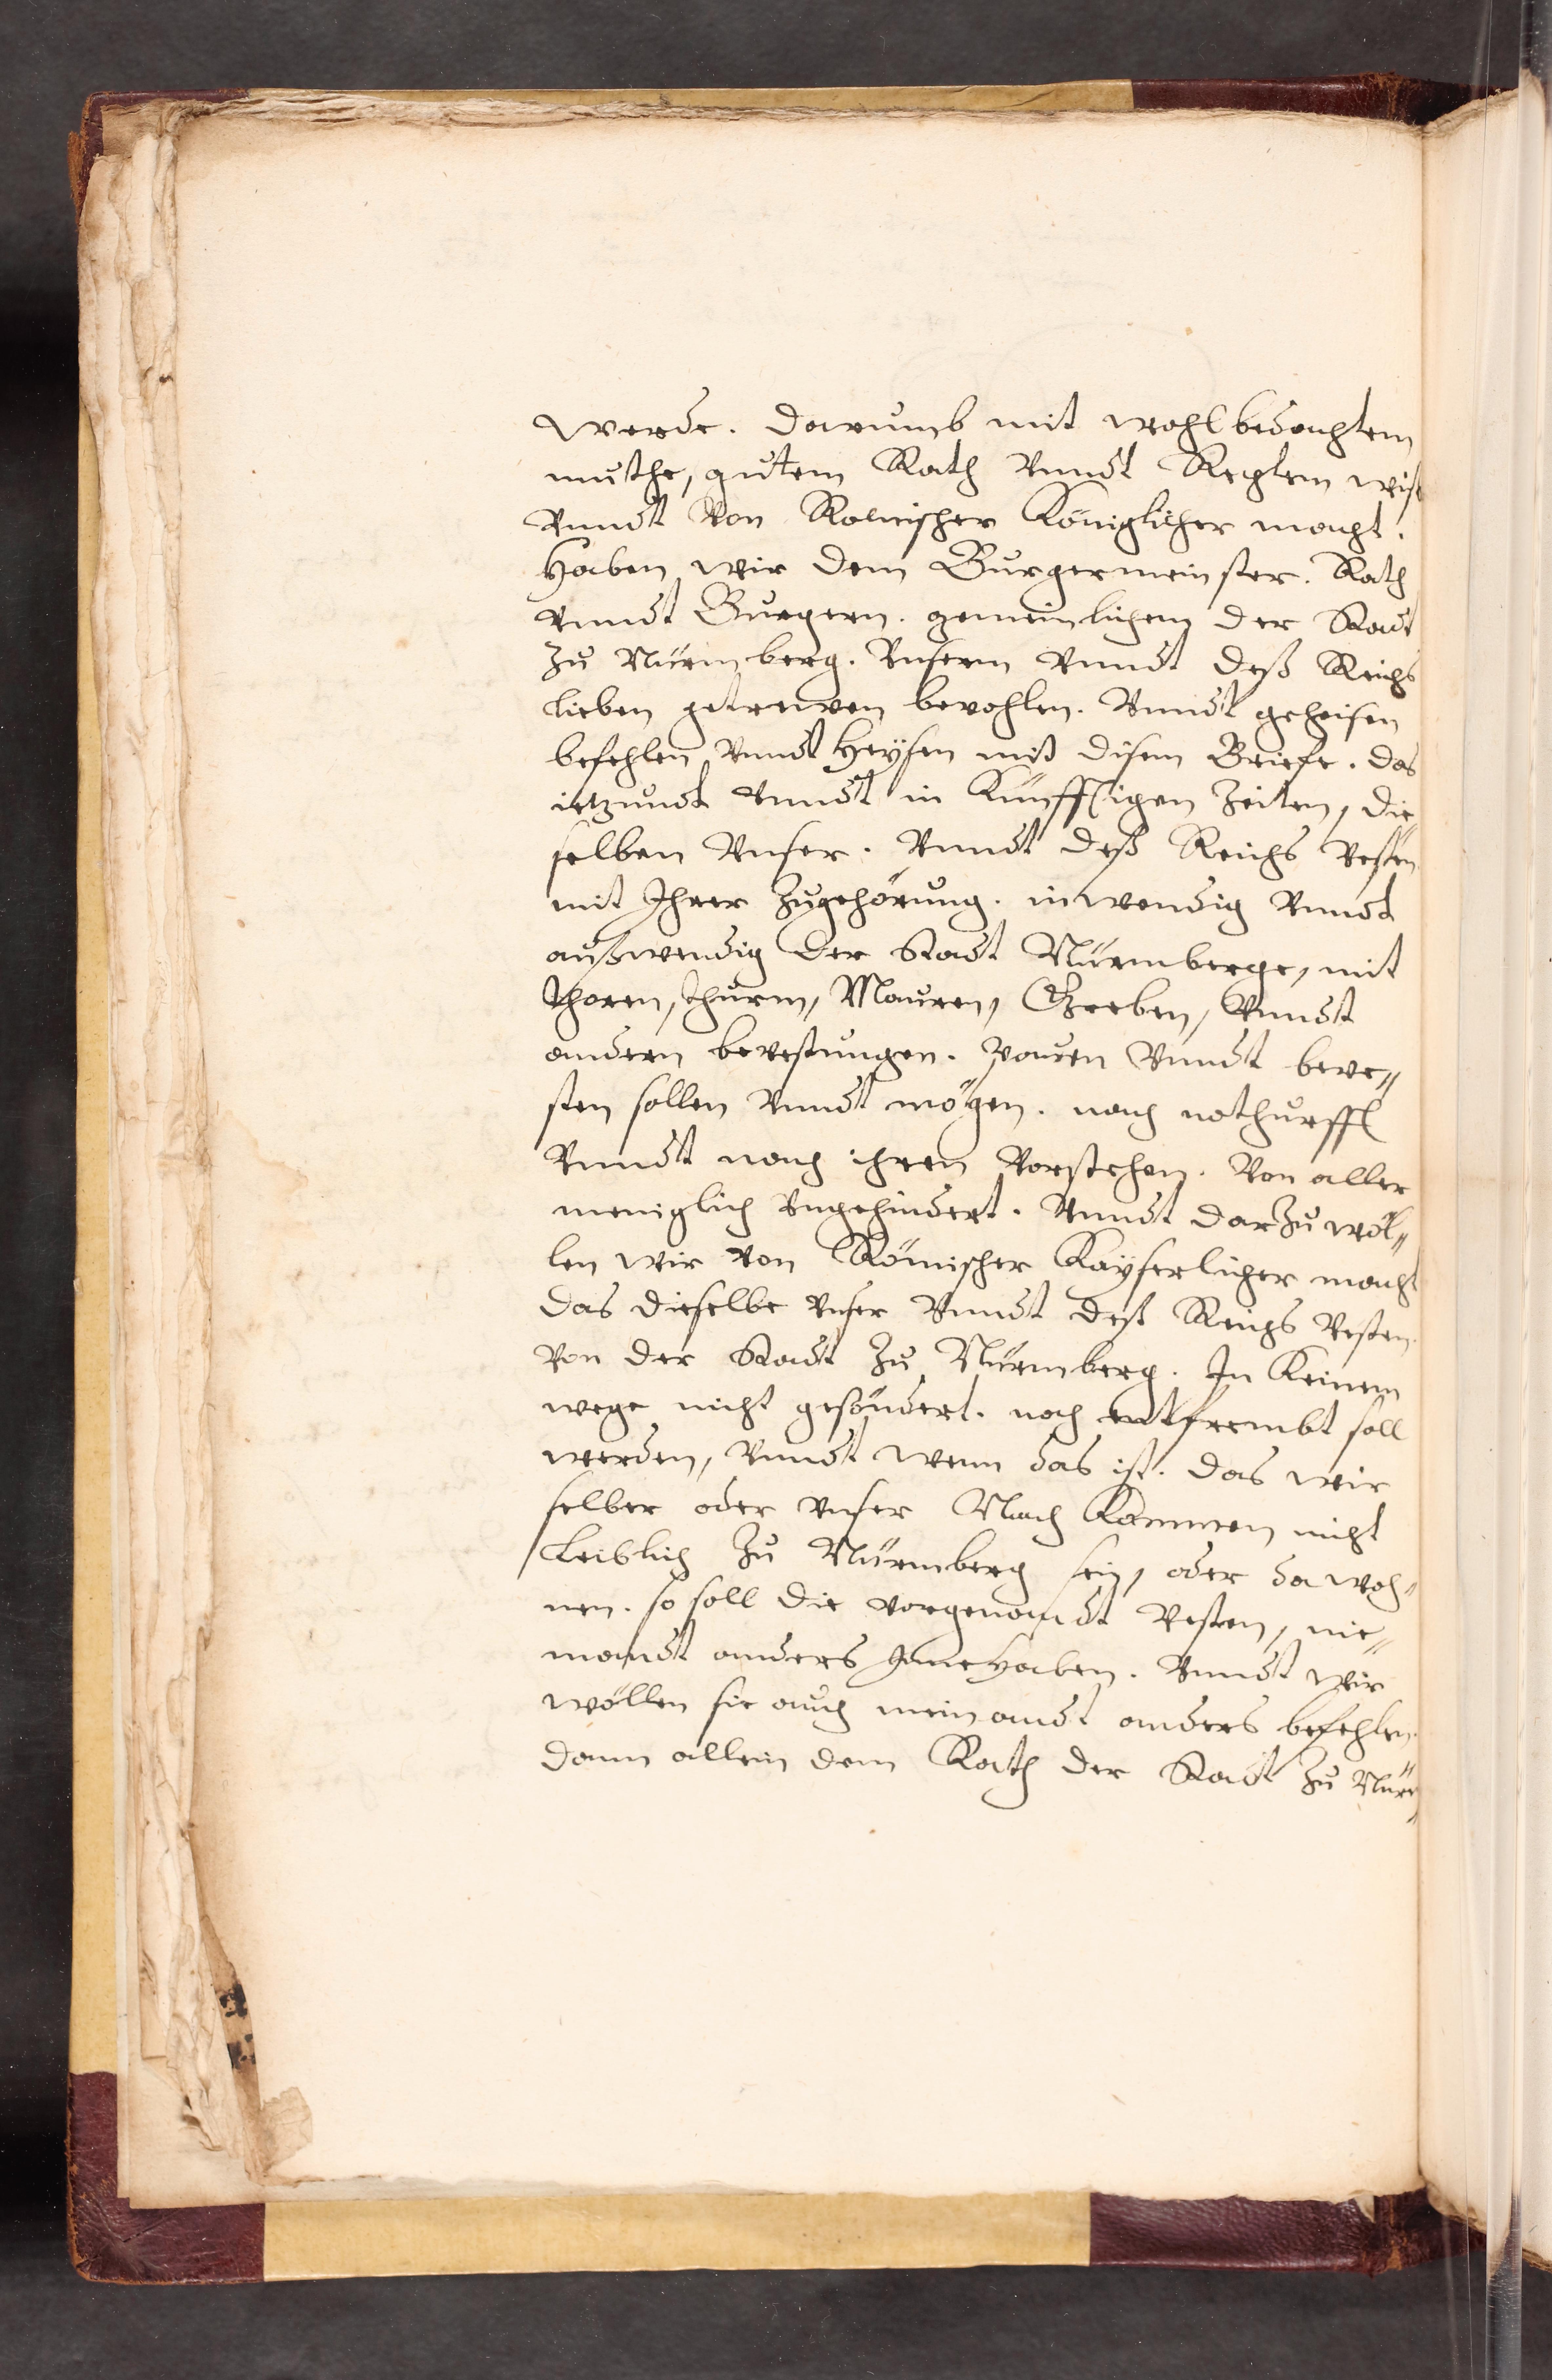 werde. darumb mit wohlbedachtem
muthe, gutem Rath Vnndt Rechtem wiss
Vnndt Von Romischer Königlicher macht.
Haben wir dem Burgermeinster. Rath
Vnndt Burgern. gemeinlichen der Stadt
zu Nürmberg. Vnsern Vnndt deß Reichs
lieben getrewen bevohlen. Vnndt geheisen
befehlen Vnndt Heÿsen miß disem Briefe. das
ietzundt Vnndt in Künfftigen Zeiten, die„
selben Vnser. Vnndt deß Reichs Vesten
mit Ihrer Zugehörung. inwendig Vnndt
außwendig der Stadt Nürmberge, mit
Thoren, Thurm, Mauren, Greben, Vnndt
andern bevestungen. Pauen Vnndt beve„
sten sollen Vnndt mögen. nach nothurfft
Vnndt nach ihren Vorstehen. Von aller
meniglich Vngehindert. Vnndt darZu wöl„
len wir von Römischer Kaÿserlicher macht
das dieselbe Vnser Vnndt deß Reichs Vesten.
Von der Stadt Zu Nürmberg. In Keinem
wege nicht gesöndert. noch entfrembt soll
werden, Vnndt wenn das ist. das wir
selber oder Vnser Nach Kommen nicht
Leiblich Zu Nürmberg sein, oder da woh„
nen. so soll die vorgenandt Vesten, nie„
mandt anders InneHaben. Vnndt wir
wöllen sie auch meinandt anders befehlen.
dann allein dem Rath der Stadt Zu Nür„